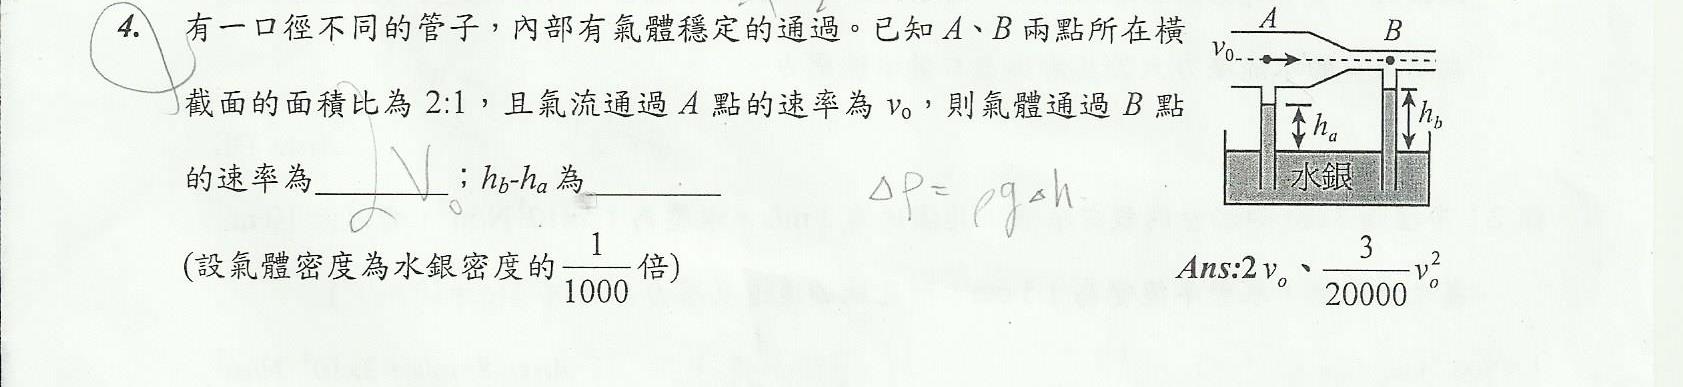 4. 有一口徑不同的管子，內部有氣體穩定的通過。已知 A、B 兩點所在橫
截面的面積比為 2:1，且氣流通過 A 點的速率為 v₀，則氣體通過 B 點
的速率為________；h_b-h_a 為________
2V₀
ΔP = ρgΔh
(設氣體密度為水銀密度的 1/1000 倍)
Ans:2v_o、3/20000 v_o²
A
B
v₀
h_a
h_b
水銀